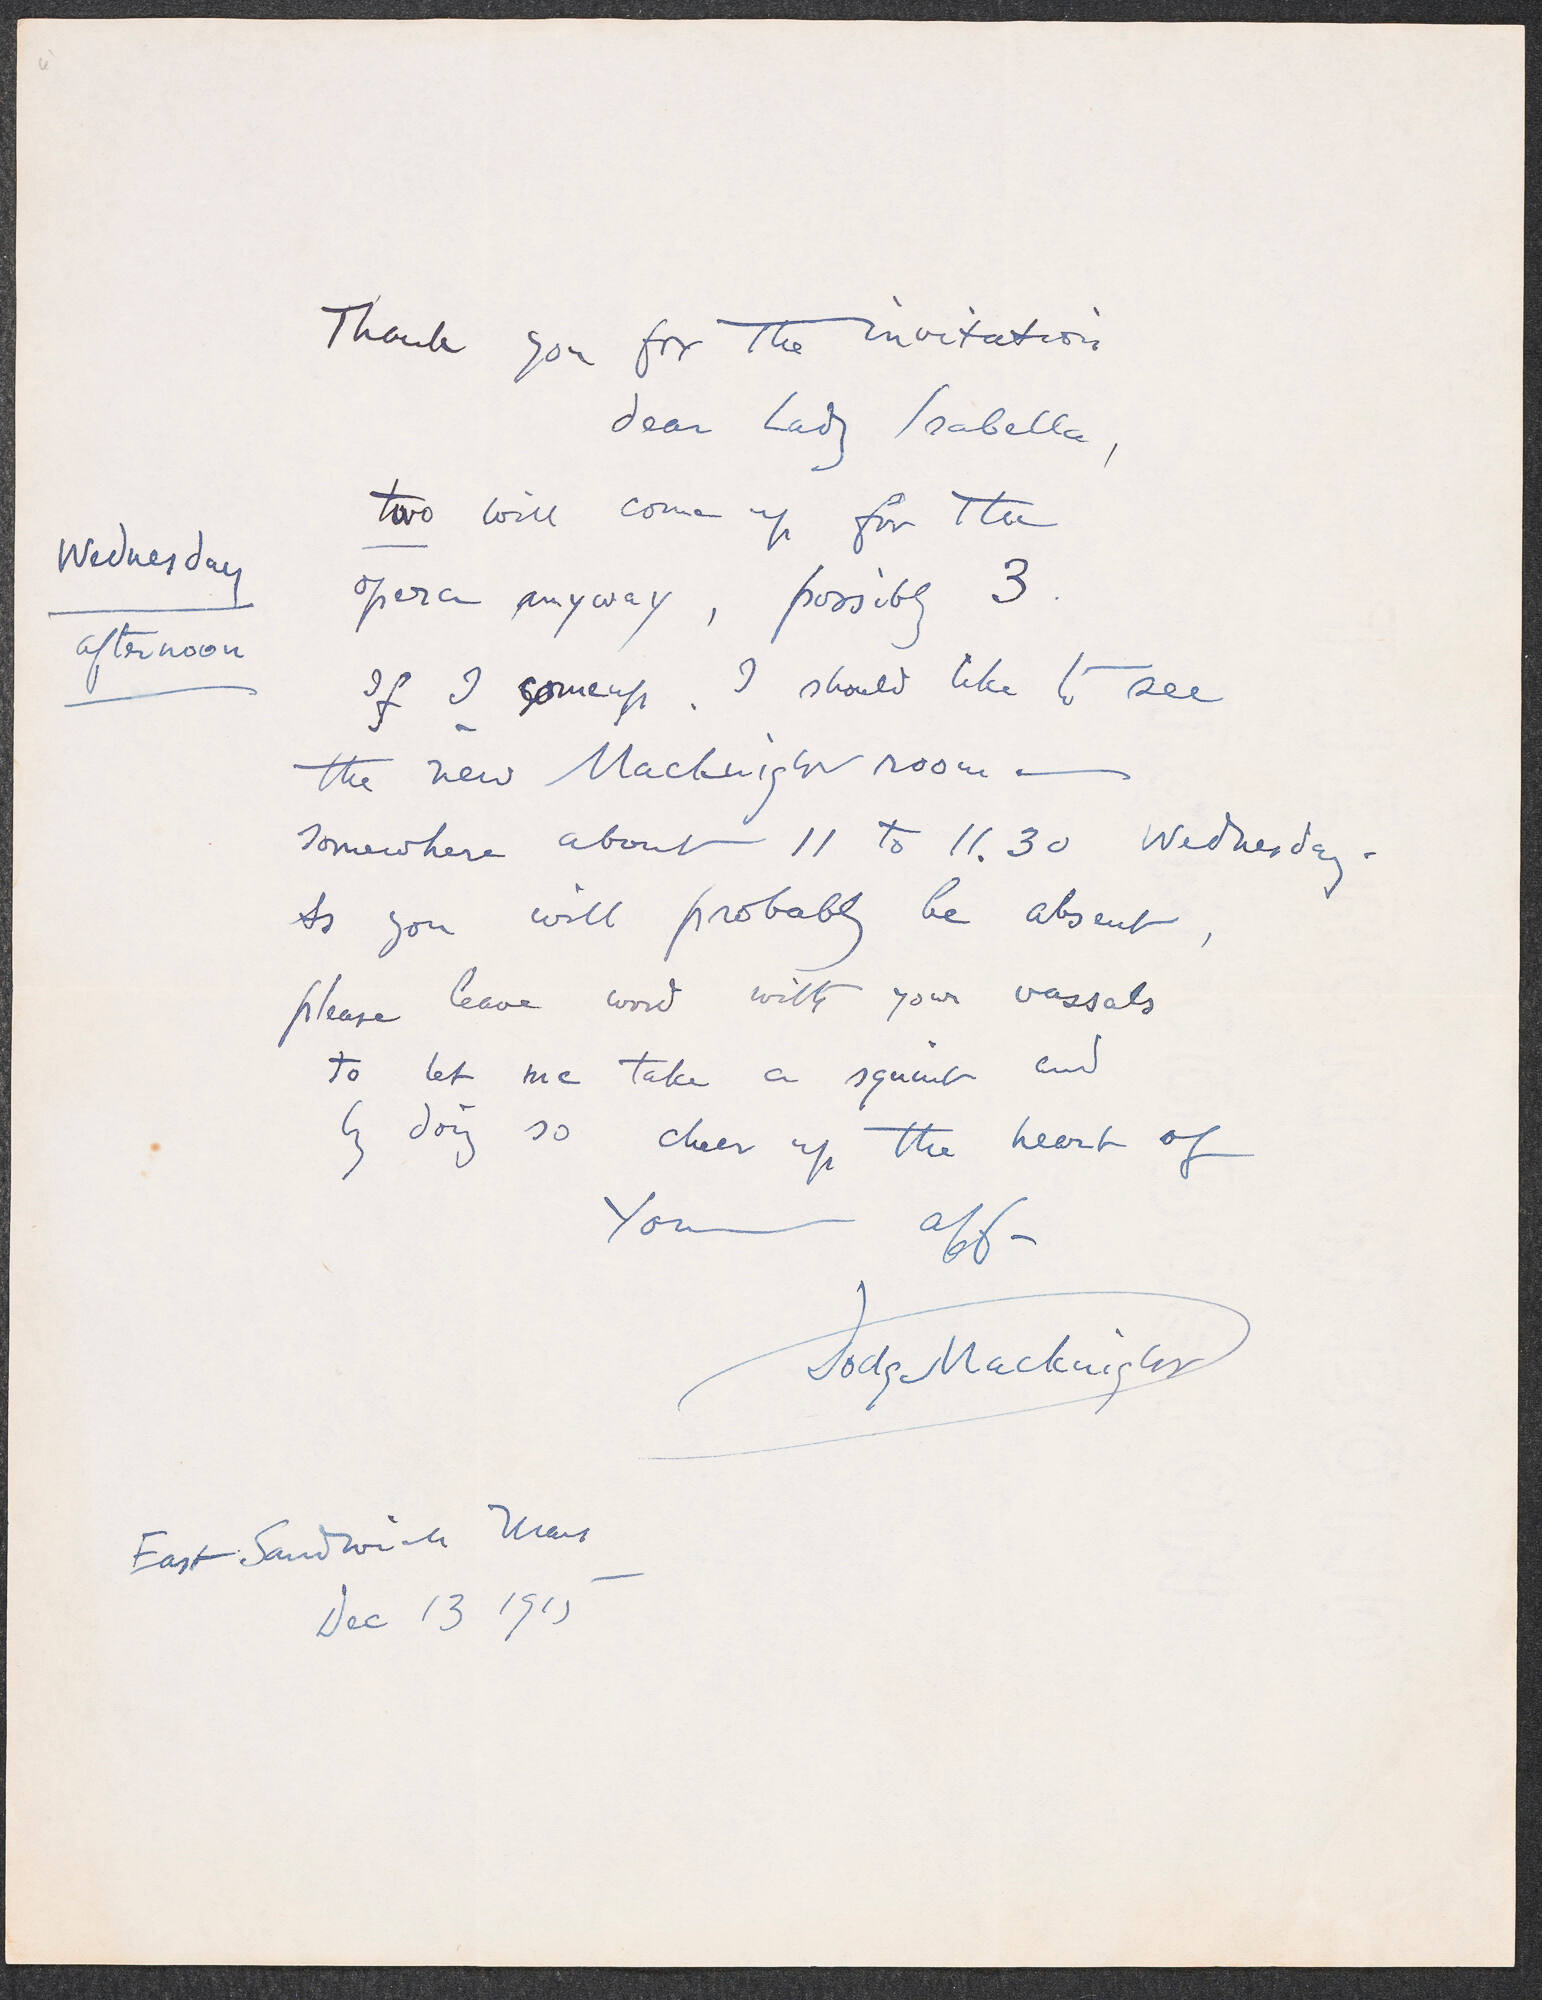 Thank you for the invitation
dear Lady Isabella,
two will come up for the
Wednesday
afternoon
opera anyway, possibly 3.
If I come up. I should like to see
the new Macknight room —
somewhere about 11 to 11.30 Wednesday.
As you will probably be absent,
please leave word with your vassals
to let me take a squint and
by doing so cheer up the heart of
Your aff-
Dodge Macknight
East Sandwich Mass
Dec 13 1915